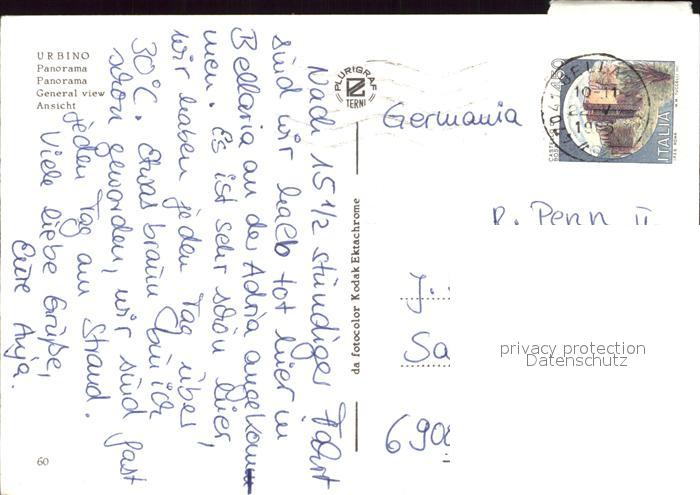 URBINO
Panorama
Panorama
General view
Ansicht
Nach 15 1/2 stündiger Fahrt
sind wir halb tot hier in
Bellaria an der Adria angekom
men. Es ist sehr schön hier,
wir haben jeden Tag über
30°C. Etwas braun bin ich
schon geworden, wir sind fast
jeden Tag am Strand.
Viele liebe Grüße,
Eure Anja.
60
PLURIGRAF
TERNI
da fotocolor Kodak Ektachrome
Germania
R. Penn
J.
Sa
690
ITALIA
10-11
privacy protection
Datenschutz